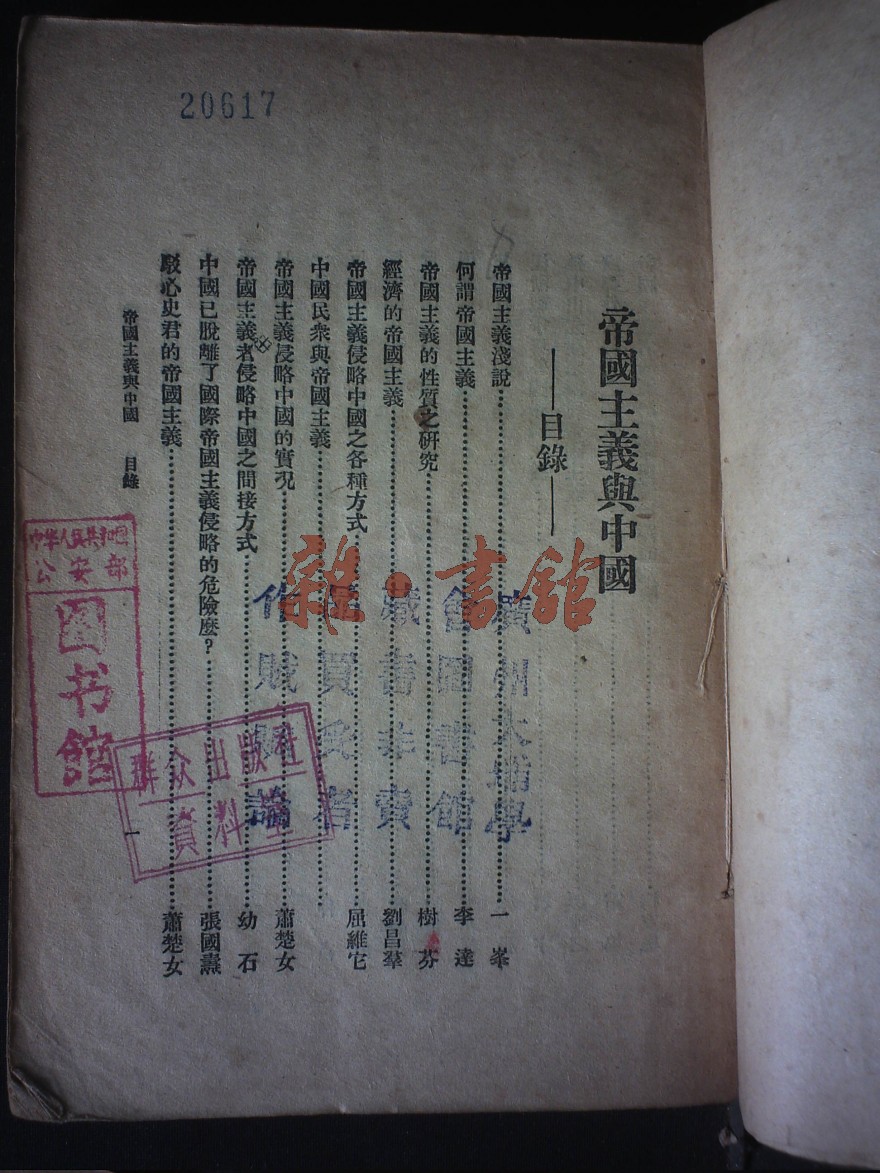 20617
帝國主義與中國
——目錄——
帝國主義淺說……一峯
何謂帝國主義……李達
帝國主義的性質之研究……樹芬
經濟的帝國主義……劉昌羣
帝國主義侵略中國之各種方式……屈維它
中國民衆與帝國主義……
帝國主義侵略中國的實況……蕭楚女
帝國主義者侵略中國之間接方式……幼石
中國已脫離了國際帝國主義侵略的危險麼?……張國燾
駁心史君的帝國主義……蕭楚女
帝國主義與中國 目錄
一
廣州大埔學
會圖書館
藏書非賣
買受者
作賊論
雜·書館
中华人民共和国
公安部
图书馆
群众出版社
资料